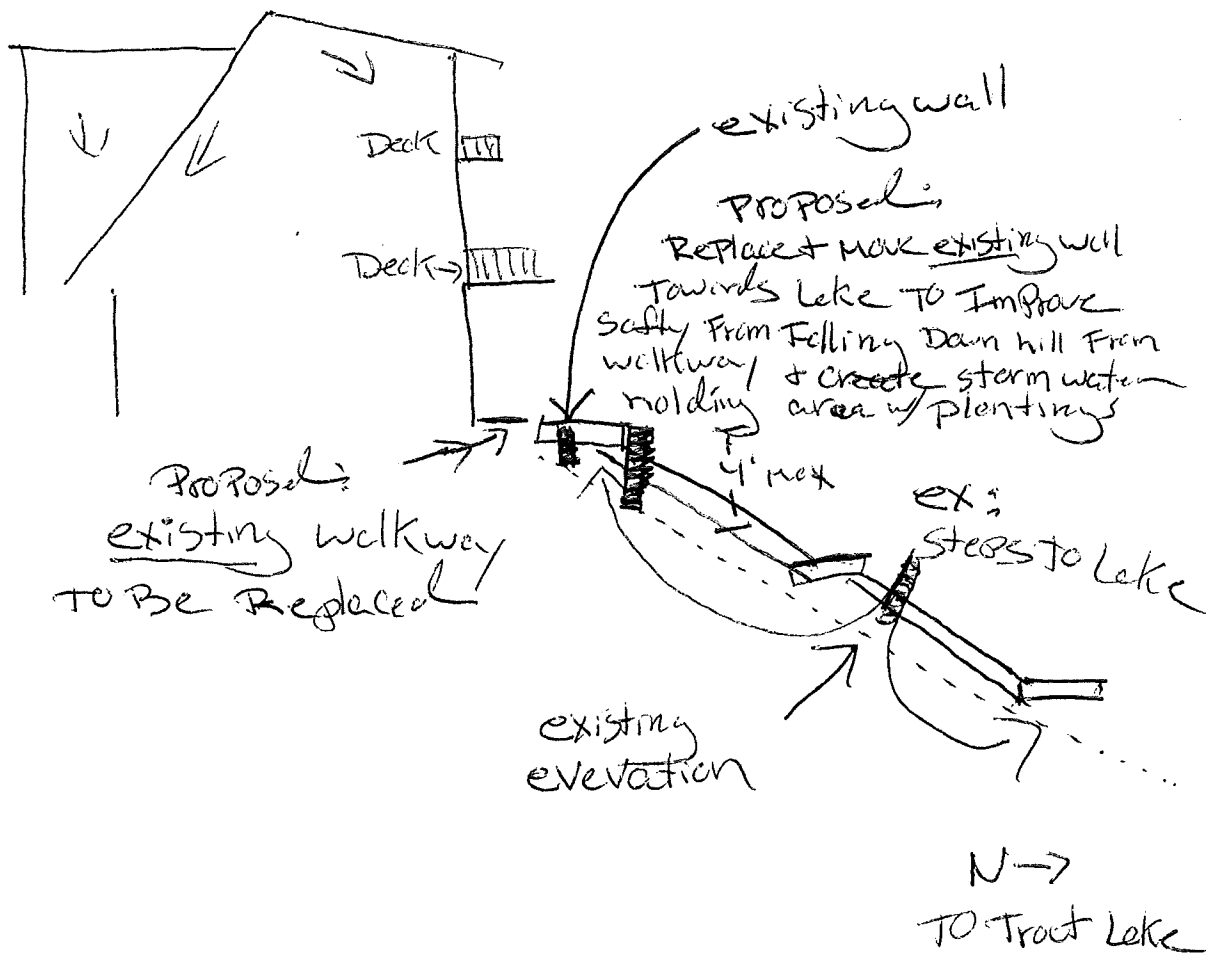 existing wall
Deck
Proposed:
Replace + Move existing wall
Deck
Towirds Lake To Improve
Safty From Falling Down hill From
walkway + create storm water
holding area w/ plantings
4' max
Proposed:
existing walkway
To Be Replaced
ex:
steps to Lake
existing
evevation
N
To Trout Lake